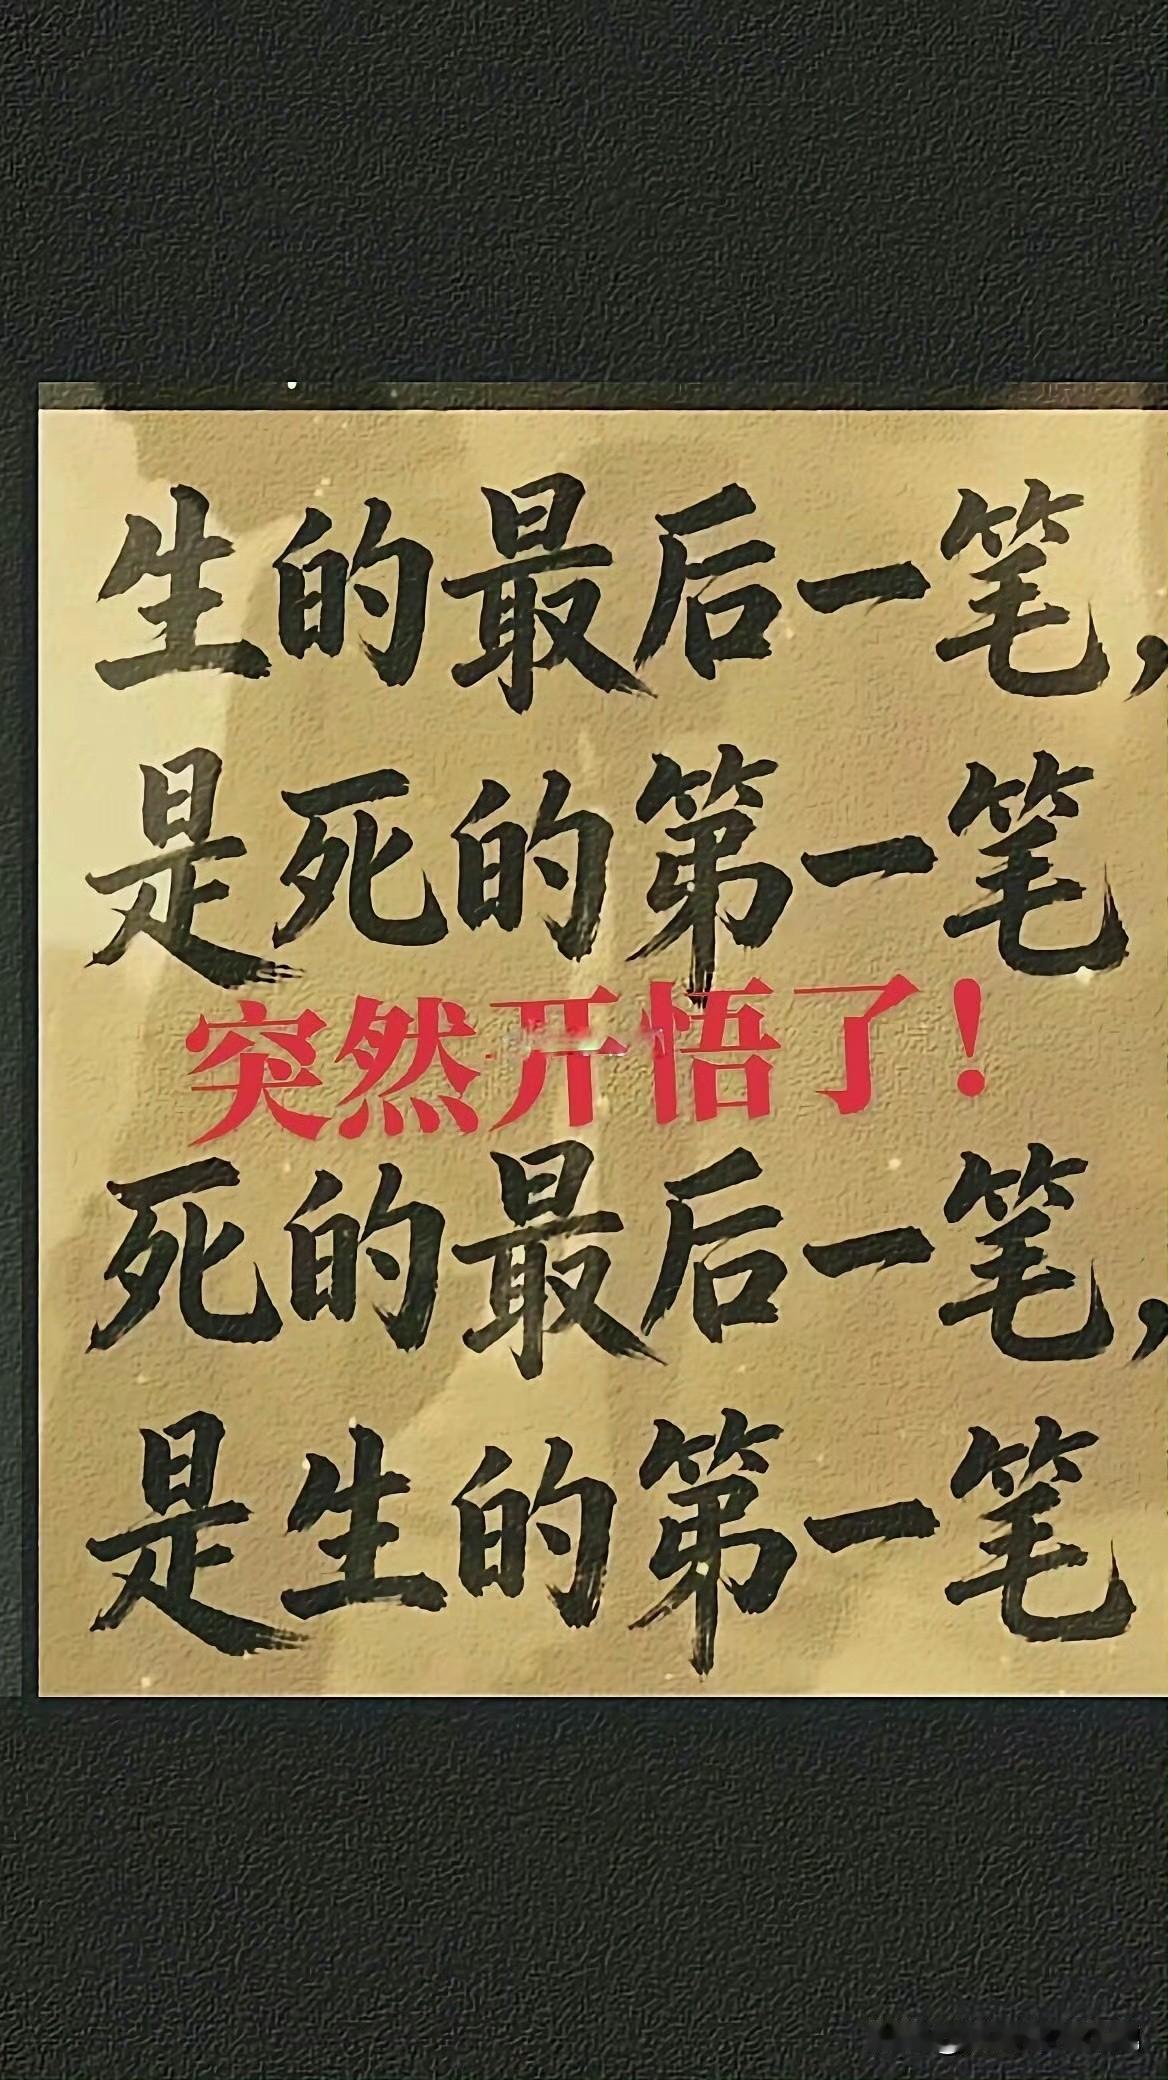 生的最后一笔，
是死的第一笔
突然开悟了！
死的最后一笔，
是生的第一笔